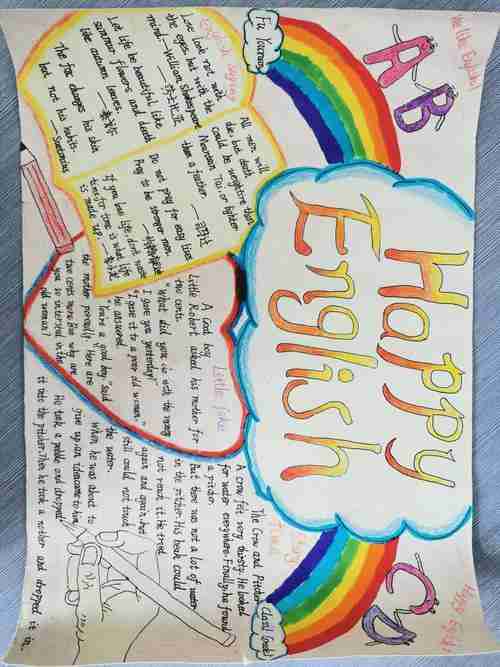 We like English!
A
B
Happy
English
C
D
English saying
Love look not with
the eyes, but with the
mind. -William Shakespeare
——莎士比亚
Let life be beautiful like
summer flowers and death
like autumn leaves.
——泰戈尔
The fox changes his skin
but not his habits.
——Suetonius
All men will
die, but death
could be weightire than
Mountain Tai or lighter
than a feather. ——司马迁
Do not pray for easy lives
Pray to be stronger men.
If you love life, don't waste
time, for time is what life
is made up.
Little joke
A Good boy
Little Robert asked his mother for
two cents.
"What did you do with the money
I gave you yesterday?"
"I gave it to a poor old woman,"
he answered.
"You're a good boy," said
the mother "Here are
two cents more. But why are
you so interested in the
old woman?
Story
Time
The Crow and Pitcher
A crow felt very thirsty. He looked
for water everywhere. Finally, he found
a pitcher.
but there was not a lot of water
in the pitcher. His beak could
not reach it. He tried
again and again, but
still could not touch
the water.
When he was about to
give up, an idea came to him.
He took a pebble and dropped
it into the pitcher. Then he took a nother and dropped it in.